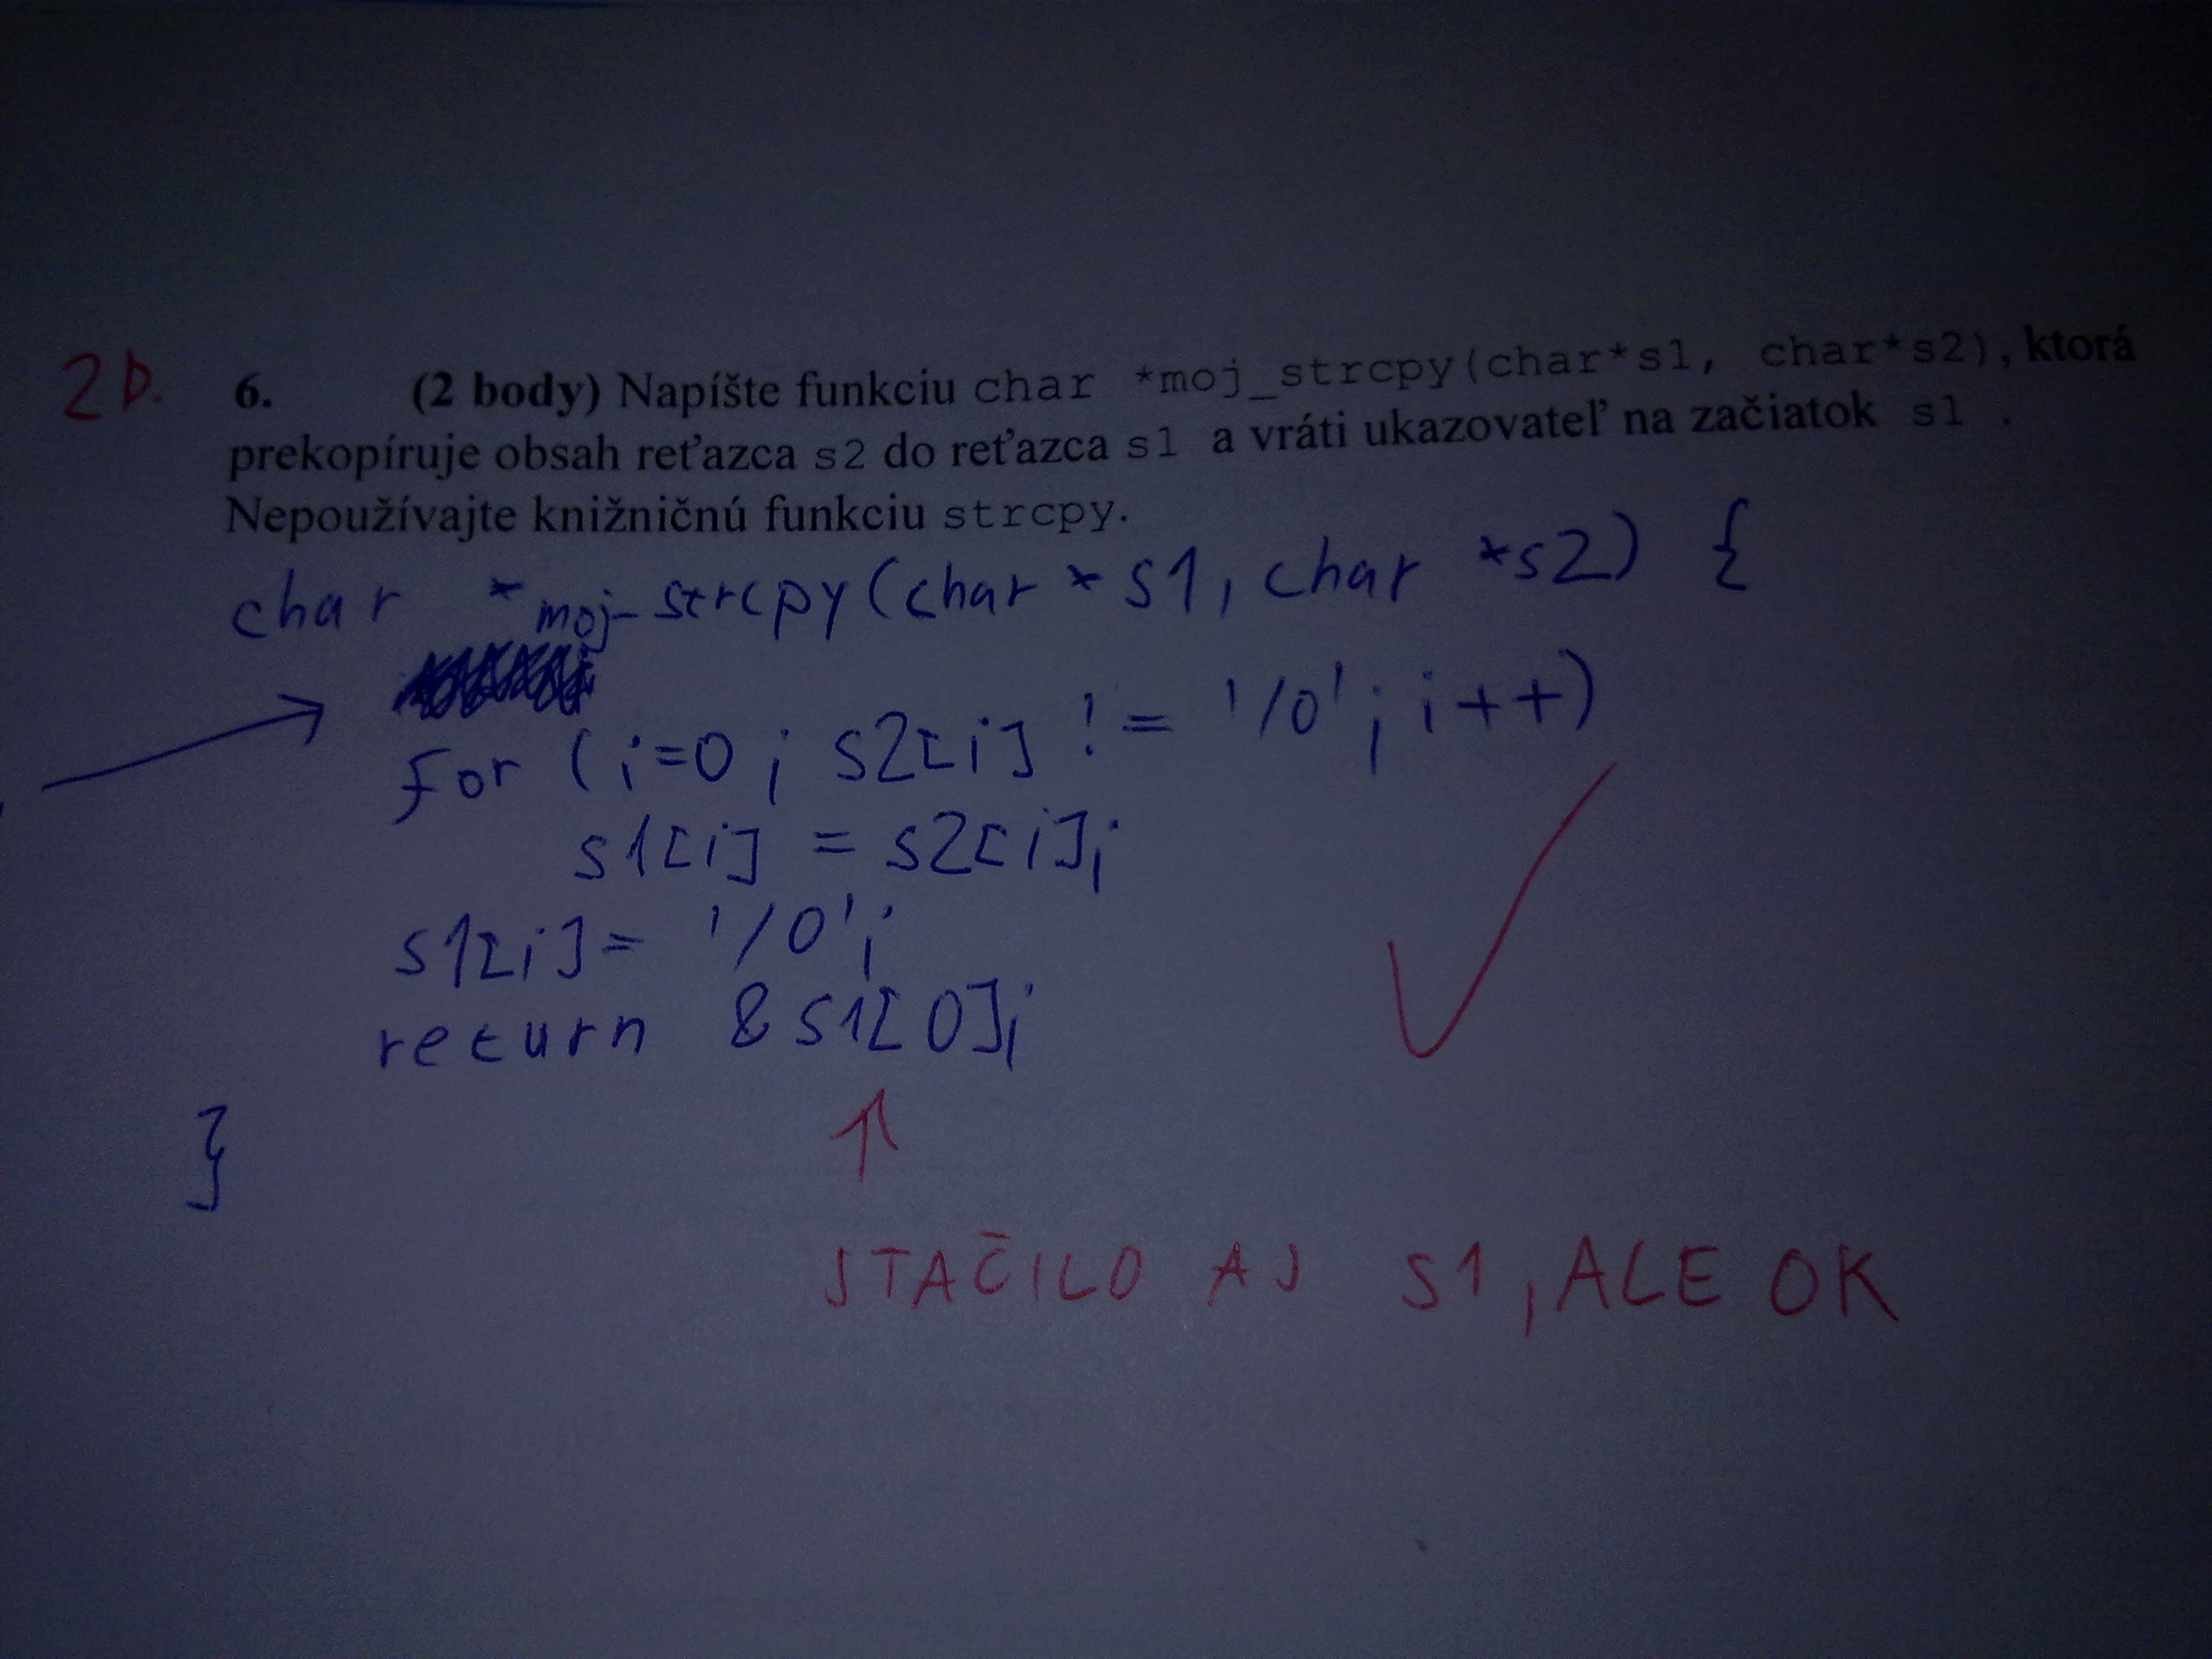 2b. 6. (2 body) Napíšte funkciu char *moj_strcpy(char*s1, char*s2), ktorá
prekopíruje obsah reťazca s2 do reťazca s1 a vráti ukazovateľ na začiatok s1 .
Nepoužívajte knižničnú funkciu strcpy.
char *moj_strcpy(char *s1, char *s2) {
for (i=0; s2[i] != '/0'; i++)
s1[i] = s2[i];
s1[i]= '/0';
return &s1[0];
}
STAČILO AJ S1, ALE OK